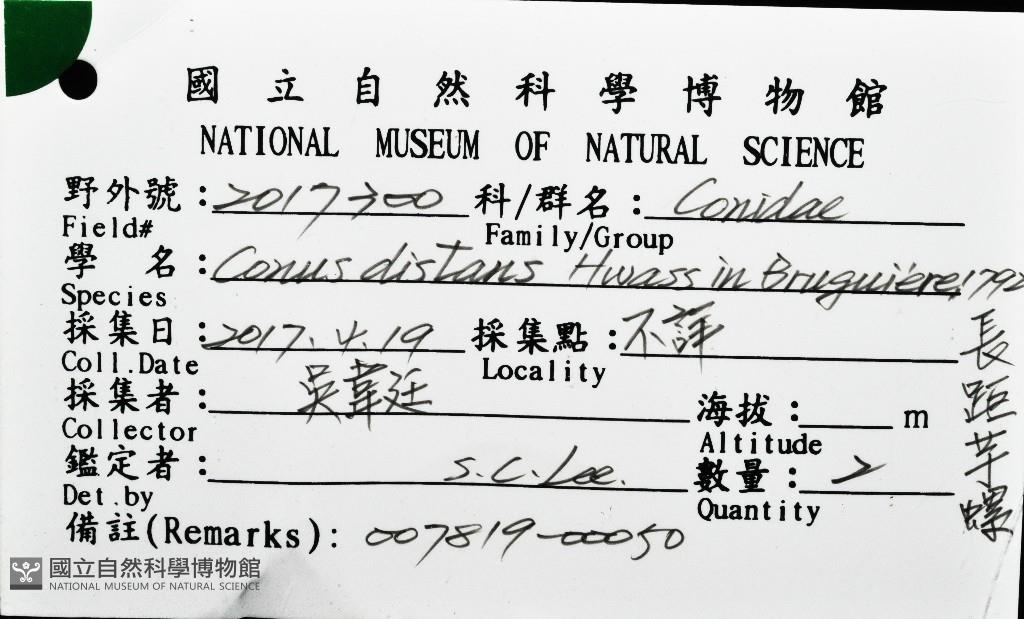 國立自然科學博物館
NATIONAL MUSEUM OF NATURAL SCIENCE
野外號：2017300 科/群名：Conidae
Field# Family/Group
學 名：Conus distans Hwass in Bruguière, 1792
Species
採集日：2017.4.19 採集點：不詳
Coll.Date Locality
採集者：吳韋廷 海拔： m
Collector Altitude
鑑定者：S.C.Lee. 數量：2
Det.by Quantity
備註(Remarks)：007819-00050
長距芋螺
國立自然科學博物館
NATIONAL MUSEUM OF NATURAL SCIENCE